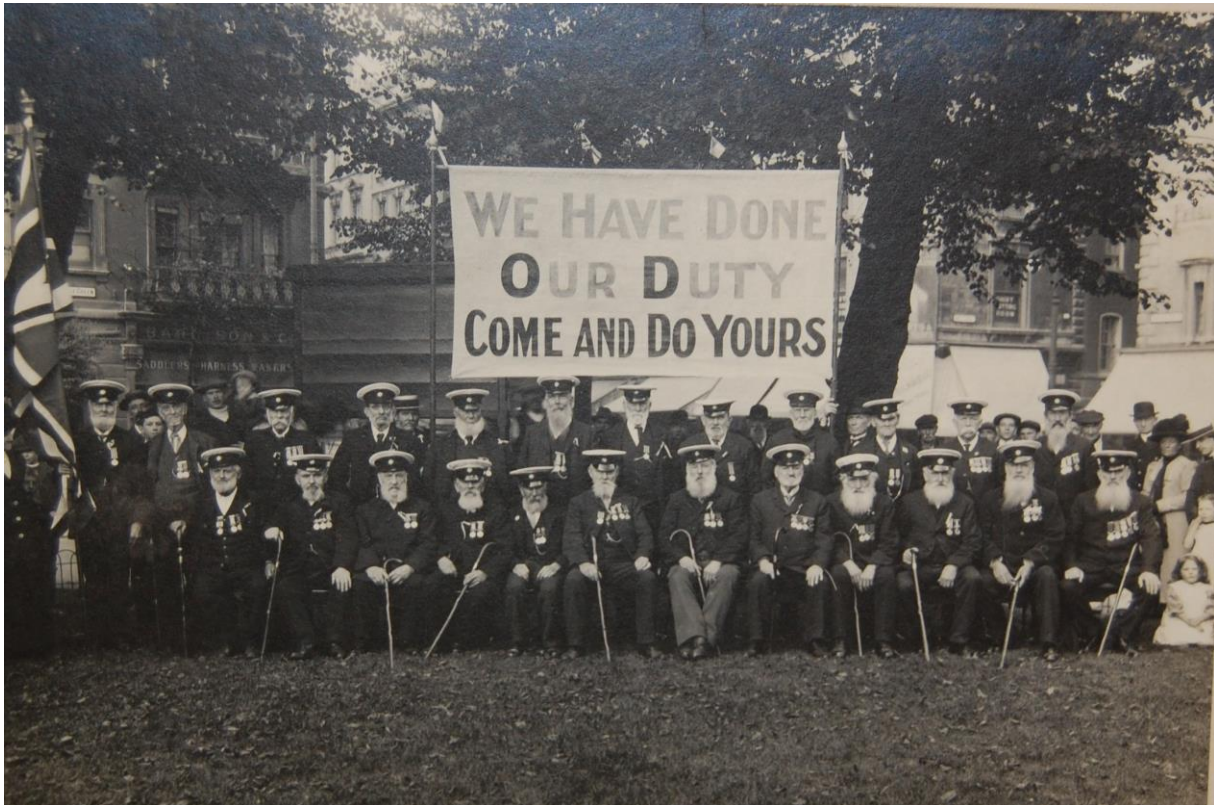 WE HAVE DONE
OUR DUTY
COME AND DO YOURS
SADDLERS HARNESS MAKERS